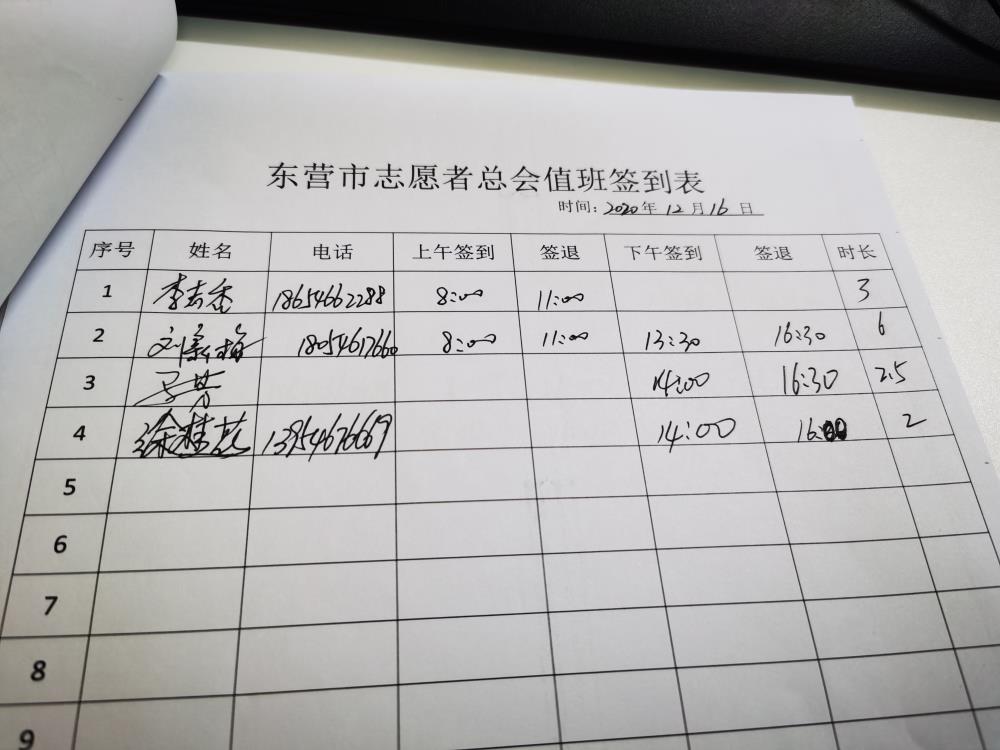 东营市志愿者总会值班签到表
时间：2020年12月16日
序号 姓名 电话 上午签到 签退 下午签到 签退 时长
1 李去香 18654662288 8:00 11:00 3
2 刘新梅 18054617660 8:00 11:00 13:30 16:30 6
3 14:00 16:30 2.5
4 徐桂花 13954676669 14:00 16:00 2
5
6
7
8
9